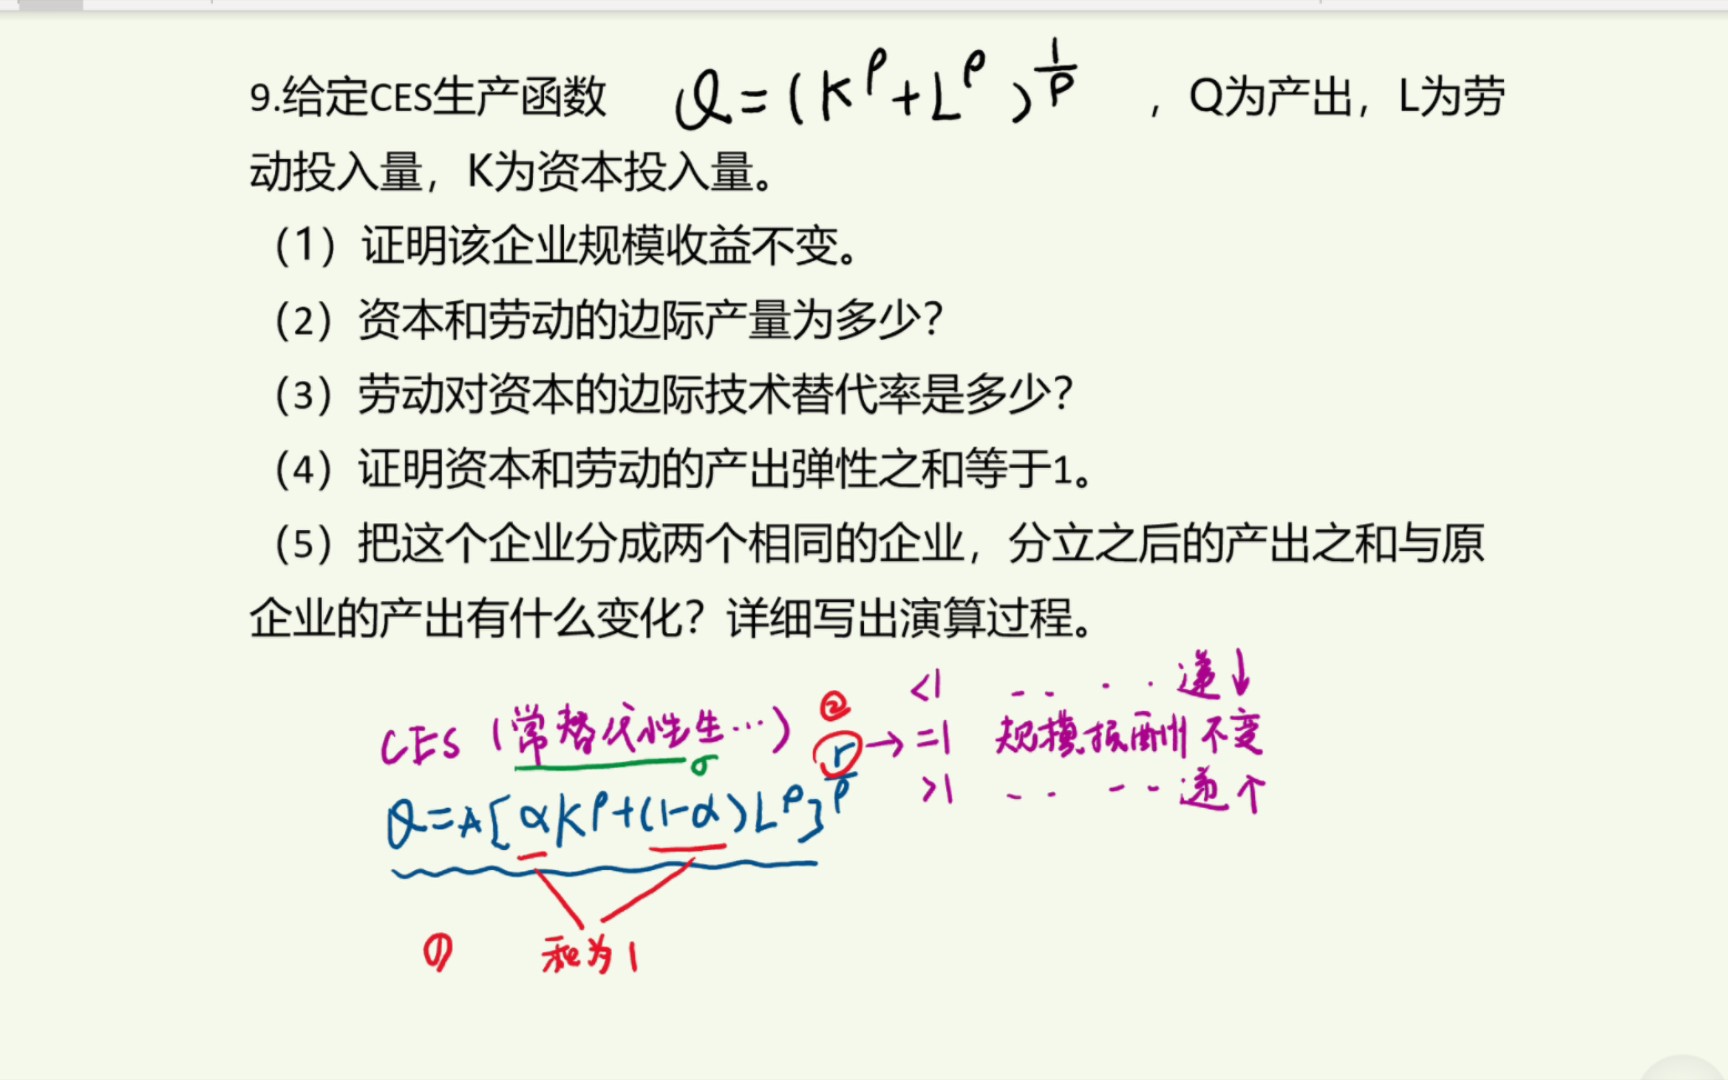 9.给定CES生产函数 Q=(K^ρ+L^ρ)^{1/ρ} ，Q为产出，L为劳
动投入量，K为资本投入量。
（1）证明该企业规模收益不变。
（2）资本和劳动的边际产量为多少？
（3）劳动对资本的边际技术替代率是多少？
（4）证明资本和劳动的产出弹性之和等于1。
（5）把这个企业分成两个相同的企业，分立之后的产出之和与原
企业的产出有什么变化？详细写出演算过程。
<1 -- · · 递↓
CES（常替代性生…） ② r → =1 规模报酬不变
σ >1 -- -- 递个
Q=A[αK^ρ+(1-α)L^ρ]^{r/ρ}
① 和为1